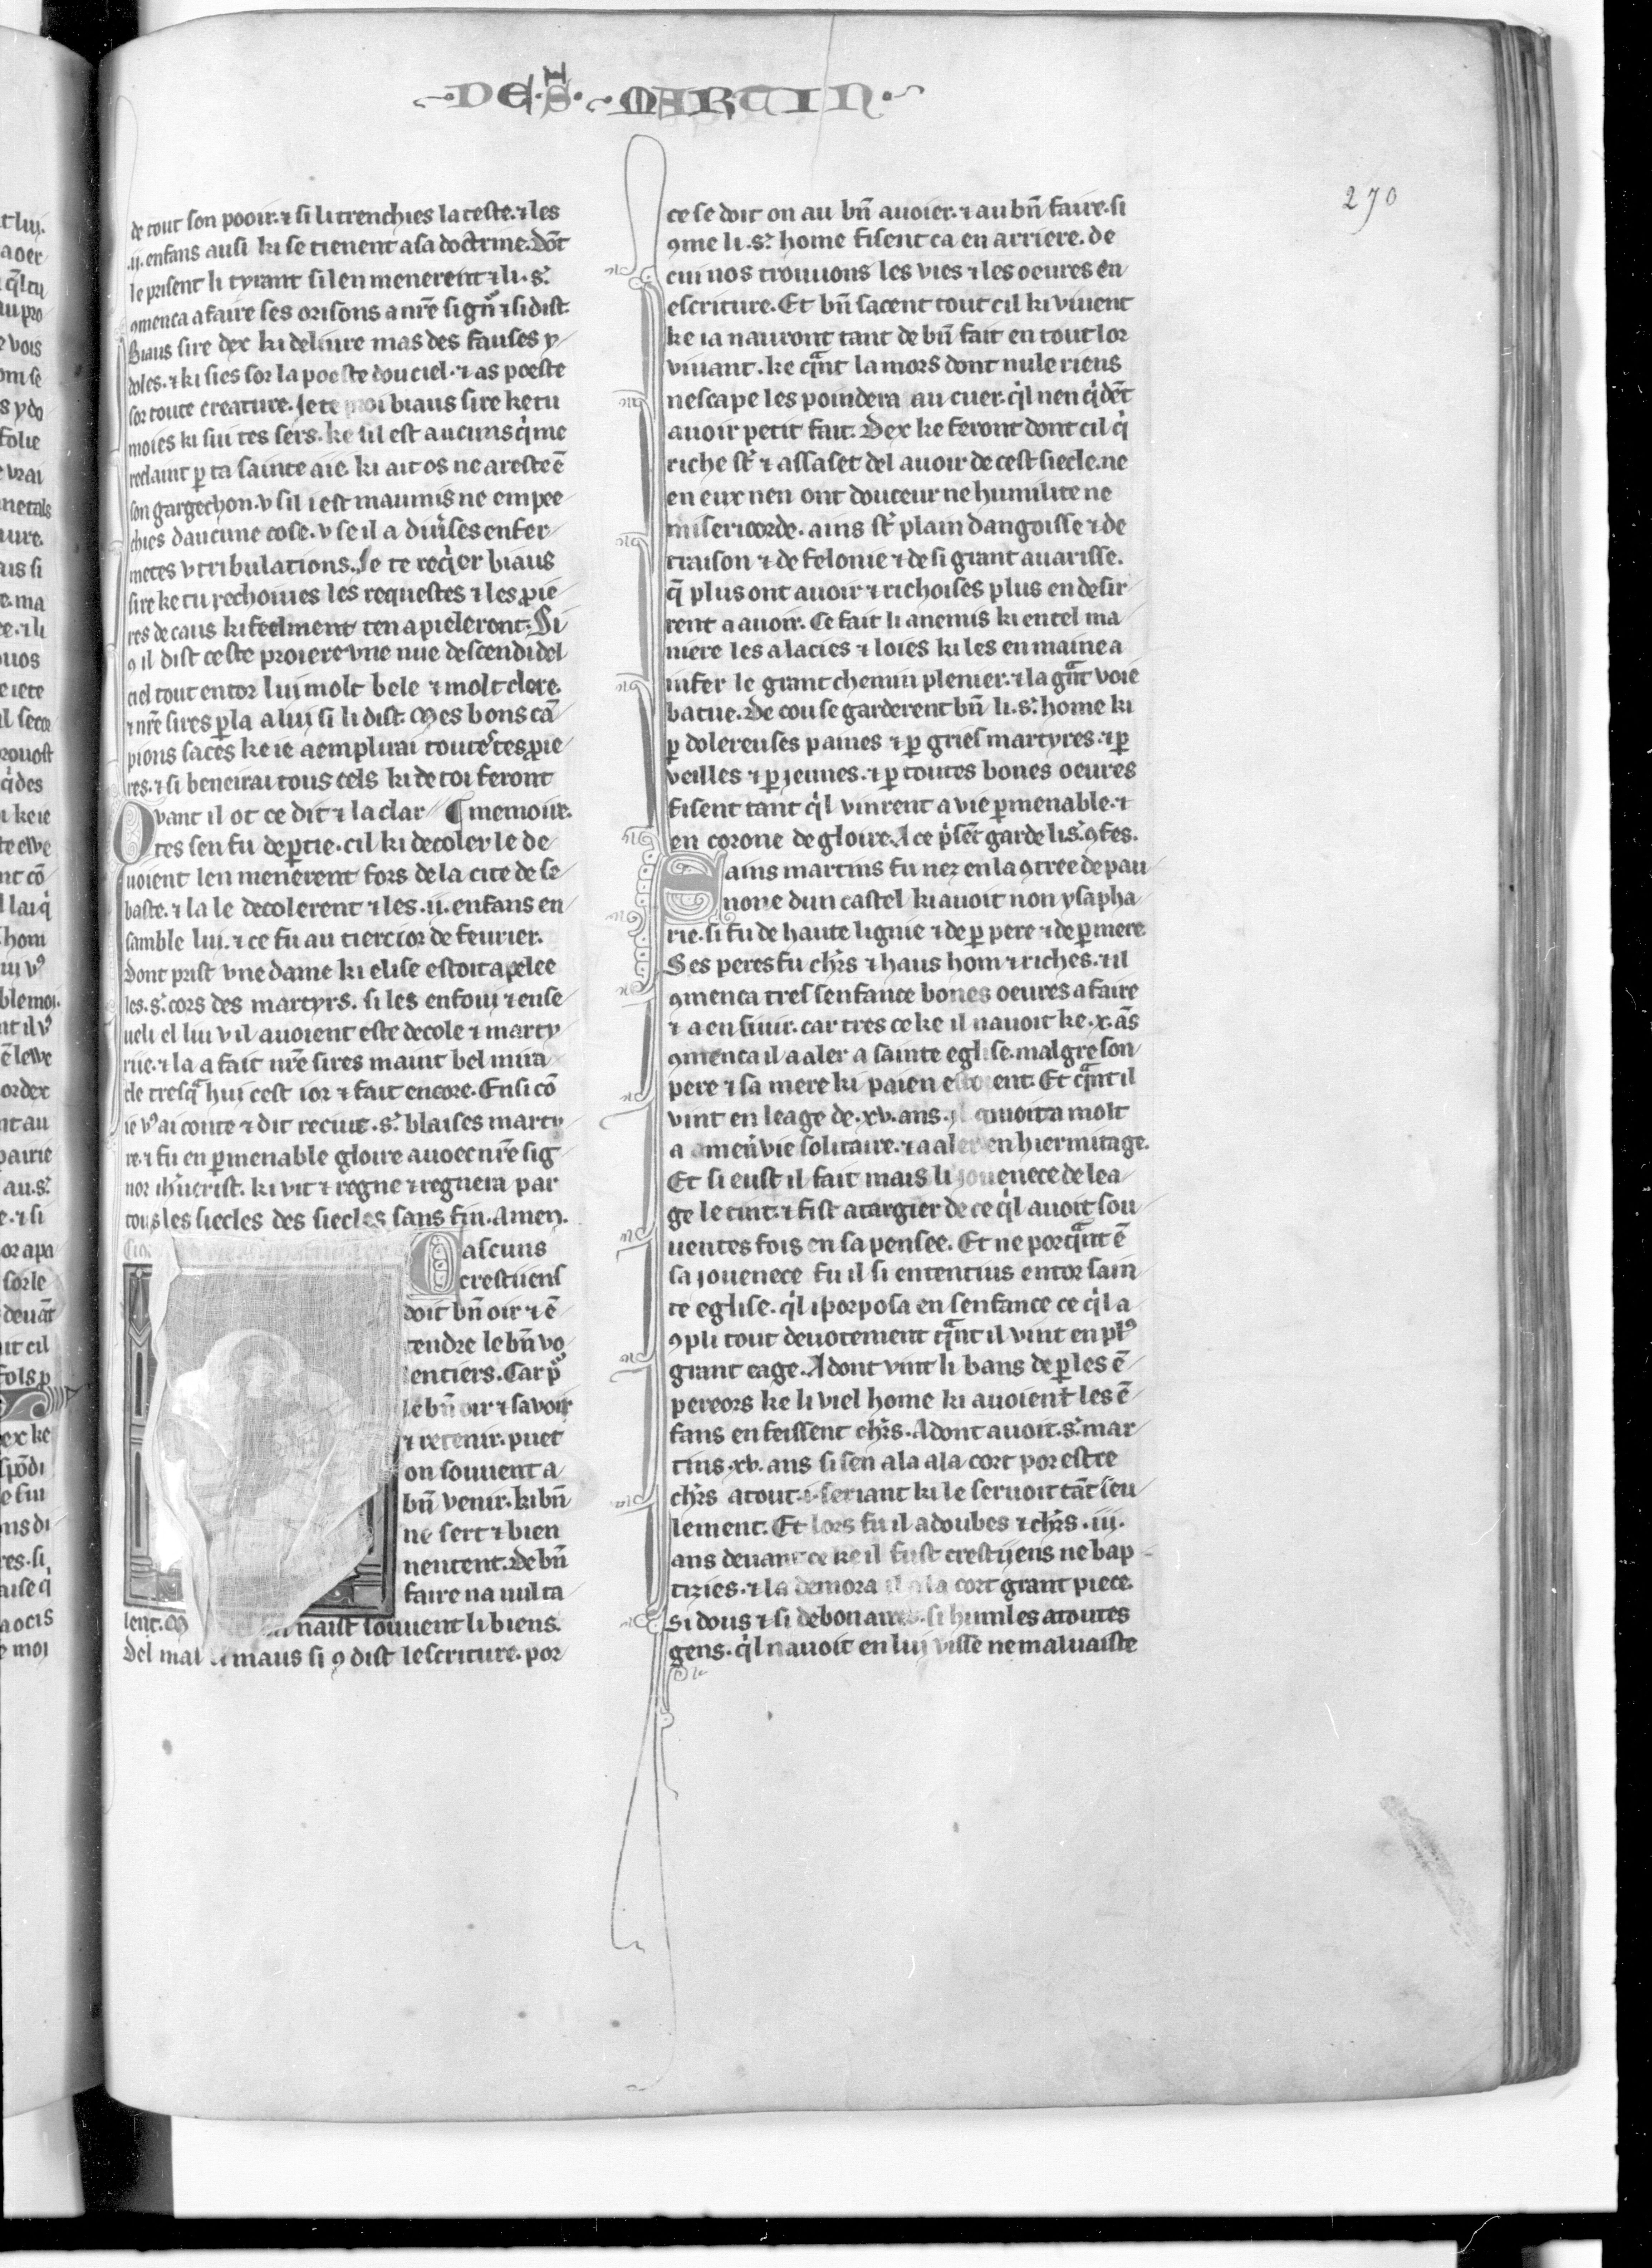 DE S. MARTIN.
270
de tout son pooir. ⁊ si li trenchies la teste. ⁊ les
.ij. enfans ausi ki se tienent a sa doctrine. Dōt
le prisent li tyrant si len menerent ⁊ li .s.
ꝯmenca a faire ses orisons a nr̄e sign̄ ⁊ si dist.
Biaus sire dex ki deliure mas des fauses y-
doles. ⁊ ki sies sor la poeste dou ciel. ⁊ as poeste
sor toute creature. Je te proi biaus sire ke tu
moies ki sui tes sers. ke sil est aucuns q̇ me
reclaint ꝑ ta sainte aie. ki ait os ne areste ē
son gargechon. v sil i est maumis ne empee-
chies daucune cose. v se il a diuises enfer-
metes v tribulations. Je te req̇er biaus
sire ke tu rechoiues les requestes ⁊ les ꝓie-
res de caus ki feelment ten apieleront. Si
ꝯ il dist ceste proiere vne nue descendi del
ciel tout entor lui molt bele ⁊ molt clere.
⁊ nr̄e sires ꝑla a lui si li dist. Mes bons cā-
pions saces ke ie aemplirai toutes tes ꝓie-
res. ⁊ si beneirai tous cels ki de toi feront
Qvant il ot ce dit ⁊ la clar- ¶ memoire.
tes sen fu deꝑtie. cil ki decoler le de-
uoient len menerent fors de la cite de se-
baste. ⁊ la le decolerent ⁊ les .ij. enfans en-
samble lui. ⁊ ce fu au tierc ior de feurier.
Dont prist vne dame ki elise estoit apelee
les .s. cors des martyrs. si les enfoui ⁊ ense-
ueli el liu v il auoient este decole ⁊ marty-
rie. ⁊ la a fait nr̄e sires maint bel mira-
cle tresq̄ hui cest ior ⁊ fait encore. Ensi cō
ie vꝰ ai conte ⁊ dit reciut .s. blaises marty-
re. ⁊ fu en ꝑmenable gloire auoec nr̄e sig-
nor ih'ucrist. ki vit ⁊ regne ⁊ regnera par
tous les siecles des siecles sans fin. Amen.
Cascuns
crestijens
doit bn̄ oir ⁊ ē-
tendre le bn̄ vo-
lentiers. Car p̄
le bn̄ oir ⁊ savoir
⁊ retenir. puet
on souuent a
bn̄ venir. ki bn̄
ne sert ⁊ bien
nentent. De bn̄
faire na nul ta-
lent. naist souuent li biens.
Del mal li maus si ꝯ dist lescriture. por
ce se doit on au bn̄ auoier. ⁊ au bn̄ faire. si
ꝯme li .s. home fisent ca en arriere. de
cui nos trouuons les vies ⁊ les oeures en
escriture. Et bn̄ sacent tout cil ki viuent
ke ia nauront tant de bn̄ fait en tout lor
viuant. ke q̄nt la mors dont nule riens
nescape les poindera au cuer. q̇l nen q̇dēt
auoir petit fait. Dex ke feront dont cil q̇
riche st̄ ⁊ assaset del auoir de cest siecle. ne
en eux nen ont douceur ne humilite ne
misericorde. ains st̄ plain dangoisse ⁊ de
traison ⁊ de felonie ⁊ de si grant auarisse.
q̄ plus ont auoir ⁊ richoises plus en desir-
rent a auoir. Ce fait li anemis ki en tel ma-
niere les a lacies ⁊ loies ki les en maine a
infer le grant chemin plenier. ⁊ la gāt voie
batue. De cou se garderent bn̄ li .s. home ki
ꝑ dolereuses paines ⁊ ꝑ gries martyres. ⁊ ꝑ
veilles ⁊ ꝑ jeunes. ⁊ ꝑ toutes bones oeures
fisent tant q̇l vinrent a vie ꝑmenable. ⁊
en corone de gloire. A ce p̄sēt garde li .s. ꝯfes.
Sains martins fu nez en la ꝯtree de pan-
none dun castel ki auoit non ysapha-
rie. si fu de haute lignie ⁊ de ꝑ pere ⁊ de ꝑ mere
Ses peres fu chrs ⁊ haus hom ⁊ riches. ⁊ il
ꝯmenca tres senfance bones oeures a faire
⁊ a ensiuir. car tres ce ke il nauoit ke .x. ās
ꝯmenca il a aler a sainte eglise. malgre son
pere ⁊ sa mere ki paien estoient. Et q̄nt il
vint en leage de .xv. ans. il couoita molt
a amen̄ vie solitaire. ⁊ a aler en hiermitage.
Et si eust il fait mais li jouenece de lea-
ge le tint. ⁊ fist atargier de ce q̇l auoit sou-
uentes fois en sa pensee. Et ne porq̄nt ē
sa jouenece fu il si ententius entor sain-
te eglise. q̇l i porposa en senfance ce q̇l a-
ꝯpli tout deuotement q̄nt il vint en plꝰ
grant eage. Adont vint li bans de ꝑ les ē-
pereors ke li viel home ki auoient les ē-
fans en feissent chrs. Adont auoit .s. mar-
tins .xv. ans si sen ala a la cort por estre
chrs atout .i. seriant ki le seruoit tāt seu-
lement. Et lors fu il adoubes ⁊ chrs .iij.
ans deuant ce ke il fust crestijens ne bap-
tizies. ⁊ la demora il a la cort grant piece.
si dous ⁊ si debonaires. si humles a toutes
gens. q̇l nauoit en lui visse ne maluaiste